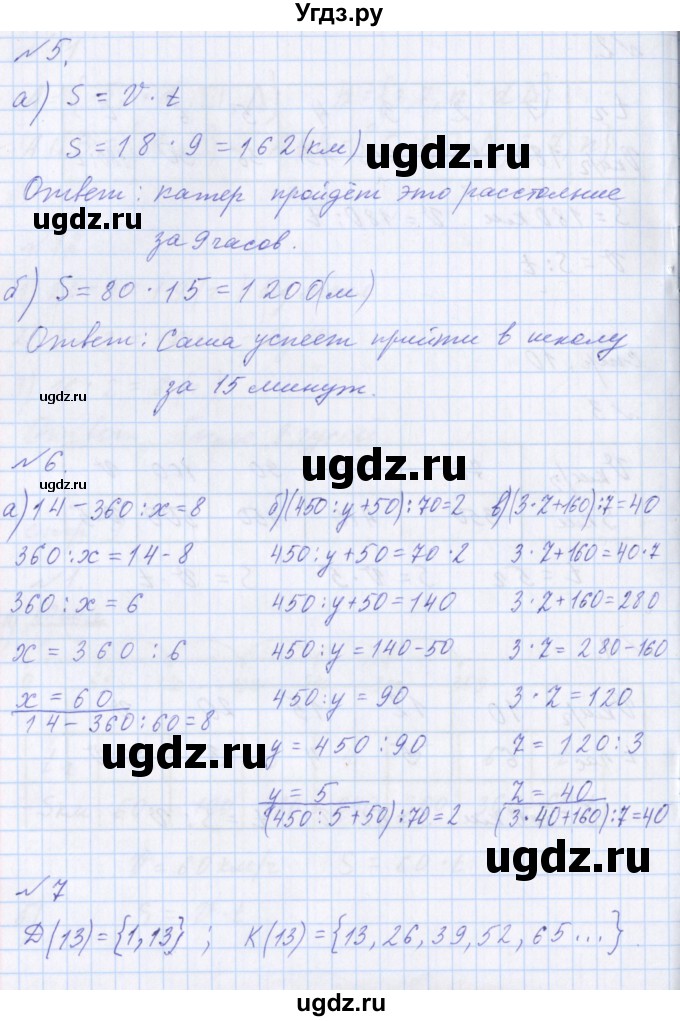 Угдз.ру
№ 5.
а) S = V · t
S = 18 · 9 = 162 (км)
ugdz.ru
Ответ: катер пройдёт это расстояние
ugdz.ru
ugdz.ru
за 9 часов.
б) S = 80 · 15 = 1 200 (м)
Ответ: Саша успеет прийти в школу
ugdz.ru
за 15 минут.
№ 6.
ugdz.ru
а) 14 - 360 : x = 8 б) (450 : y + 50) : 70 = 2 в) (3 · z + 160) : 7 = 40
360 : x = 14 - 8 450 : y + 50 = 70 · 2 3 · z + 160 = 40 · 7
360 : x = 6 450 : y + 50 = 140 3 · z + 160 = 280
x = 360 : 6 450 : y = 140 - 50 3 · z = 280 - 160
x = 60 450 : y = 90 3 · z = 120
14 - 360 : 60 = 8
ugdz.ru
y = 450 : 90 z = 120 : 3
y = 5 z = 40
(450 : 5 + 50) : 70 = 2 (3 · 40 + 160) : 7 = 40
ugdz.ru
№ 7
Д(13) = {1, 13} ; К(13) = {13, 26, 39, 52, 65 ...}.
ugdz.ru
ugdz.ru